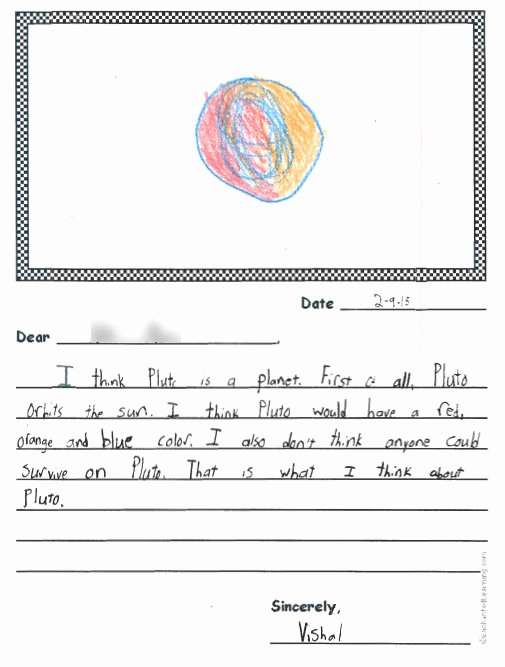 Date 2-9-15
Dear
I think Pluto is a planet. First of all, Pluto
orbits the sun. I think Pluto would have a red,
orange and blue color. I also don't think anyone could
survive on Pluto. That is what I think about
Pluto.
Sincerely,
Vishal
©EnchantedLearning.com